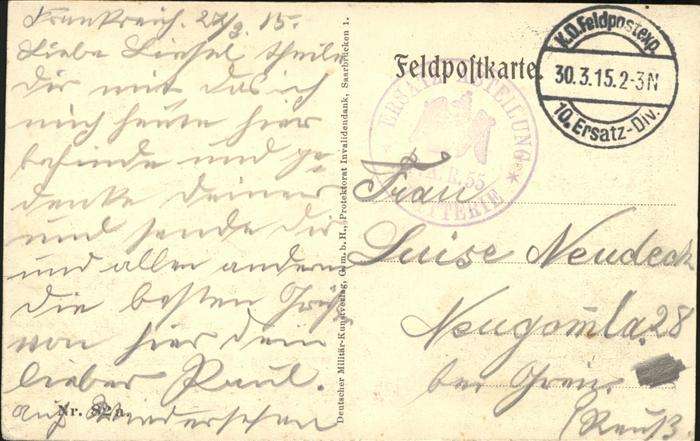 Frankreich. 27/3. 15.
Liebe Liesel theile
Dir mit das ich
mich heute hier
befinde und ge-
denke deiner
und sende dir
und allen andern
die besten Grüße
von hier dein
lieber Paul.
auf Wiedersehen
Nr. 82a.
Deutscher Militär-Kunstverlag, G.m.b.H., Protektorat Invalidendank, Saarbrücken 1.
Feldpostkarte.
K.D.Feldpostexp.
30.3.15.2-3N
10.Ersatz-Div.
ERSATZ ABTEILUNG
F.A.R. 55
BATTERIE
Frau
Luise Neudeck
Neugomla 28
bei Greiz.
(Reuß.